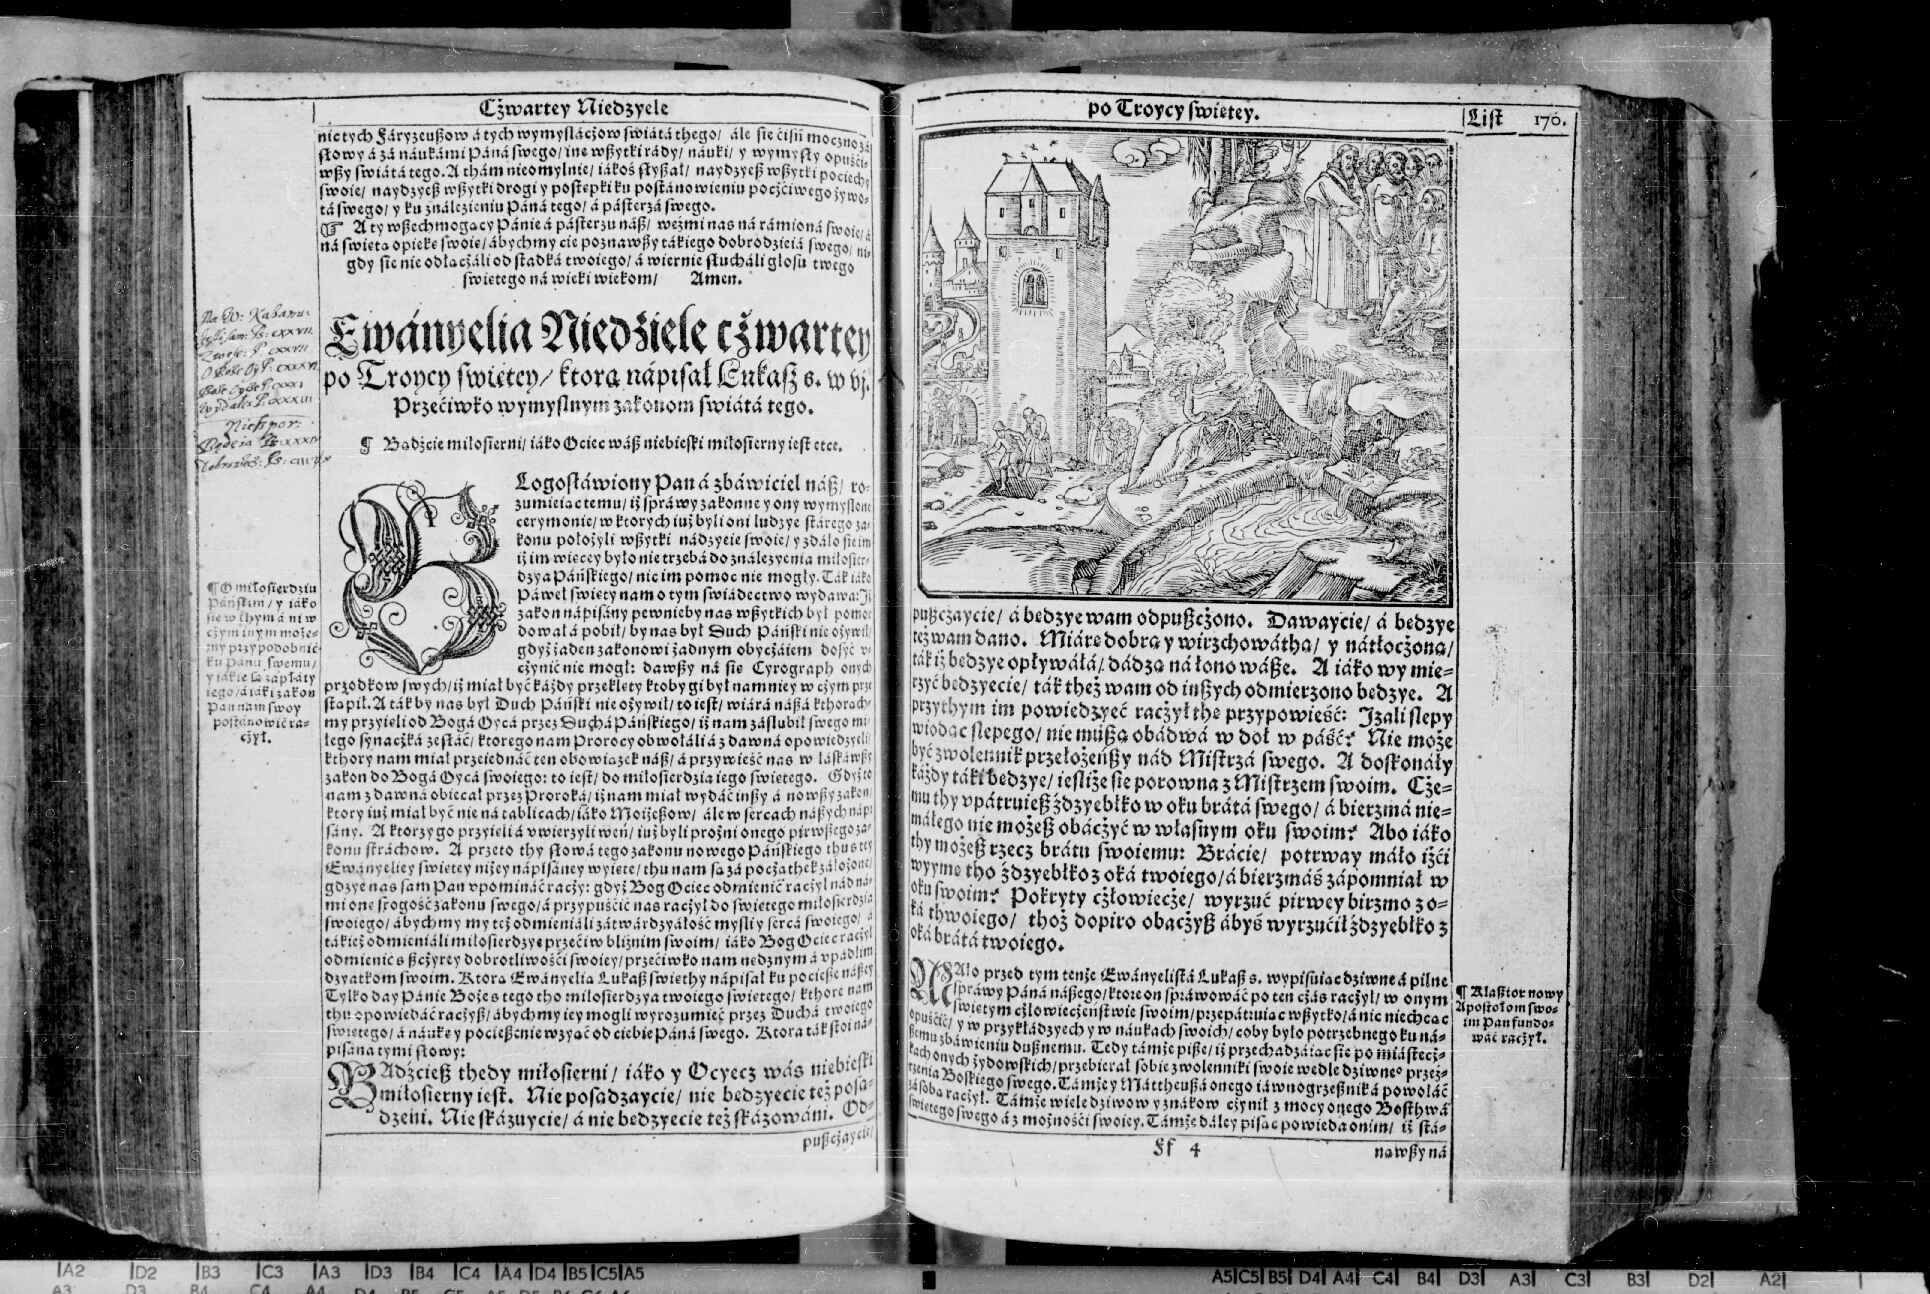 Cżwartey Niedzyele
nic tych Fáryzeußow á tych wymyslácżow świátá thego/ ále sie ćisń moczno zá
słowy á zá náukámi Páná swego/ ine wßytki rády/ náuki/ y wymysły opuśći-
wßy świátá tego. A thám nieomylnie/ iákoś słyßał/ naydzyeß wßytki pociechy
swoie/ naydzyeß wßytki drogi y postępki ku postánowieniu pocżćiwego żywo-
tá swego/ y ku ználezieniu Páná tego/ á pásterzá swego.
A ty wßechmogący Pánie á pásterzu náß/ weźmi nas ná rámioná swoie/ á
ná święta opiekę swoię/ ábychmy cię poznawßy tákiego dobrodzieiá swego/ ni-
gdy sie nie odłącżáli od stadká twoiego/ á wiernie słucháli głosu twego
świętego ná wieki wiekom/ Amen.
Ewányelia Niedźiele cżwartey
po Troycy świętey/ ktorą nápisał Lukaß s. w vj.
Przećiwko wymyslnym zakonom świátá tego.
¶ Bądźcie miłosierni/ iáko Ociec wáß niebieski miłosierny iest etce.
BLogosłáwiony Pan á zbáwiciel náß/ ro-
zumieiąc temu/ iż spráwy zakonne y ony wymyslone
cerymonie/ w ktorych iuż byli oni ludzye stárego za-
konu położyli wßytki nádzyeie swoie/ y zdáło sie im
iż im więcey było nie trzebá do ználezyenia miłosier-
dzya Páńskiego/ nic im pomoc nie mogły. Ták iáko
Páweł święty nam o tym świádectwo wydawa: Iż
zakon nápisány pewnieby nas wßytkich był pomor
dował á pobił/ by nas był Duch Páński nie ożywił/
gdyż żaden zakonowi żadnym obycżáiem dosyć v-
cżynić nie mogł: dawßy ná się Cyrograph onych
przodkow swych/ iż miał być káżdy przeklęty ktoby gi był namniey w cżym prze
stąpił. A ták by nas był Duch Páński nie ożywił/ to iest/ wiárá náßá kthorách-
my przyięli od Bogá Oycá przez Duchá Páńskiego/ iż nam záslubił swego mi-
łego synacżká zesłáć/ ktorego nam Prorocy obwołáli á z dawná opowiedzyeli/
kthory nam miał przeiednáć ten obowiązek náß/ á przywieść nas w łáskáwßy
zakon do Bogá Oycá swoiego: to iest/ do miłosierdzia iego świętego. Gdyż to
nam z dawná obiecał przez Proroká/ iż nam miał wydáć inßy á nowßy zakon/
ktory iuż miał być nie ná tablicach/ iáko Moiżeßow/ ále w sercach náßych nápi
sány. A ktorzy go przyięli á vwierzyli weń/ iuż byli prożni onego pirwßego za-
konu stráchow. A przeto thy słowá tego zakonu nowego Páńskiego thu s tey
Ewányeliey świętey niżey nápisáney wyięte/ thu nam są zá pocżathek záłożone/
gdzye nas sam Pan vpomináć racży: gdyż Bog Ociec odmienić racżył nád ná-
mi onę srogość zakonu swego/ á przypuśćić nas racżył do świętego miłosierdzia
swoiego/ ábychmy my też odmieniáli zátwárdzyáłość mysli y sercá swoiego/ á
tákież odmieniáli miłosierdzye przećiw bliźnim swoim/ iáko Bog Ociec racżył
odmienić s ßcżyrey dobrotliwośći swoiey/ przećiwko nam nędznym á vpádłim
dzyatkom swoim. Ktora Ewányelia Lukaß święthy nápisał ku pocieße náßey
Tylko day Pánie Boże s tego tho miłosierdzya twoiego świętego/ kthore nam
thu opowiedáć racżyß/ ábychmy iey mogli wyrozumieć przez Duchá twoiego
świętego/ á náukę y pocießenie wzyąć od ciebie Páná swego. Ktora ták stoi ná-
pisána tymi słowy:
BAdźcieß thedy miłosierni/ iáko y Ocyecz wáß niebieski
miłosierny iest. Nie posądzaycie/ nie będzyecie też posą-
dzeni. Nie skázuycie/ á nie będzyecie też skázowáni. Od-
pußcżaycie/
¶ O miłosierdziu
Páńskim/ y iáko
sie w thym á ni w
cżym inym może-
my przypodobnić
ku Pánu swemu/
y iákie są zapłáty
iego/ á iáki zakon
Pan nam swoy
postánowić ra-
cżył.
po Troycy świętey.
List 170.
pußcżaycie/ á będzye wam odpußcżono. Dawaycie/ á będzye
też wam dano. Miárę dobrą y wirzchowátha/ y nátłocżoną/
ták iż będzye opływáłá/ dádzą ná łono wáße. A iáko wy mie-
rzyć będzyecie/ ták theż wam od inßych odmierzono będzye. A
przythym im powiedzyeć racżył the przypowieść: Izali slepy
wiodąc slepego/ nie mußą obádwá w doł w páść? Nie może
być zwolennik przełożeńßy nád Mistrzá swego. A doskonáły
káżdy táki będzye/ iesliże sie porowna z Mistrzem swoim. Cże-
mu thy vpátruieß źdzyebłko w oku brátá swego/ á bierzmá nie-
máłego nie możeß obácżyć w własnym oku swoim? Abo iáko
thy możeß rzecz brátu swoiemu: Brácie/ potrway máło iżći
wyymę tho źdzyebłko z oká twoiego/ á bierzmáś zápomniał w
oku swoim? Pokryty cżłowiecże/ wyrzuć pirwey birzmo z o-
ká thwoiego/ thoż dopiro obacżyß ábyś wyrzućił źdzyebłko z
oká brátá twoiego.
MAło przed tym tenże Ewányelistá Lukaß s. wypisuiąc dziwne á pilne
spráwy Páná náßego/ ktore on spráwowáć po ten cżás racżył/ w onym
świętym cżłowiecżeństwie swoim/ przepátruiąc wßytko/ á nic niechcąc
opuśćić/ y w przykłádzyech y w náukach swoich/ coby było potrzebnego ku ná-
ßemu zbáwieniu dußnemu. Tedy támże piße/ iż przechadzáiąc sie po miástecż-
kach onych żydowskich/ przebierał sobie zwolenniki swoie wedle dziwneº przeź-
rzenia Boskiego swego. Támże y Mátheußá onego iáwnogrzeßniká powołáć
zá sobą racżył. Támże wiele dziwow y znákow cżynił z mocy onego Bosthwá
świętego swego á z możnośći swoiey. Támże dáley pisáć powiedá o nim/ iż stá-
Ff 4
nąwßy ná
¶ Klaßtor nowy
Apostołom swo-
im Pan fundo-
wáć racżył.
A2 D2 B3 C3 A3 D3 B4 C4 A4 D4 B5 C5 A5
A5 C5 B5 D4 A4 C4 B4 D3 A3 C3 B3 D2 A2